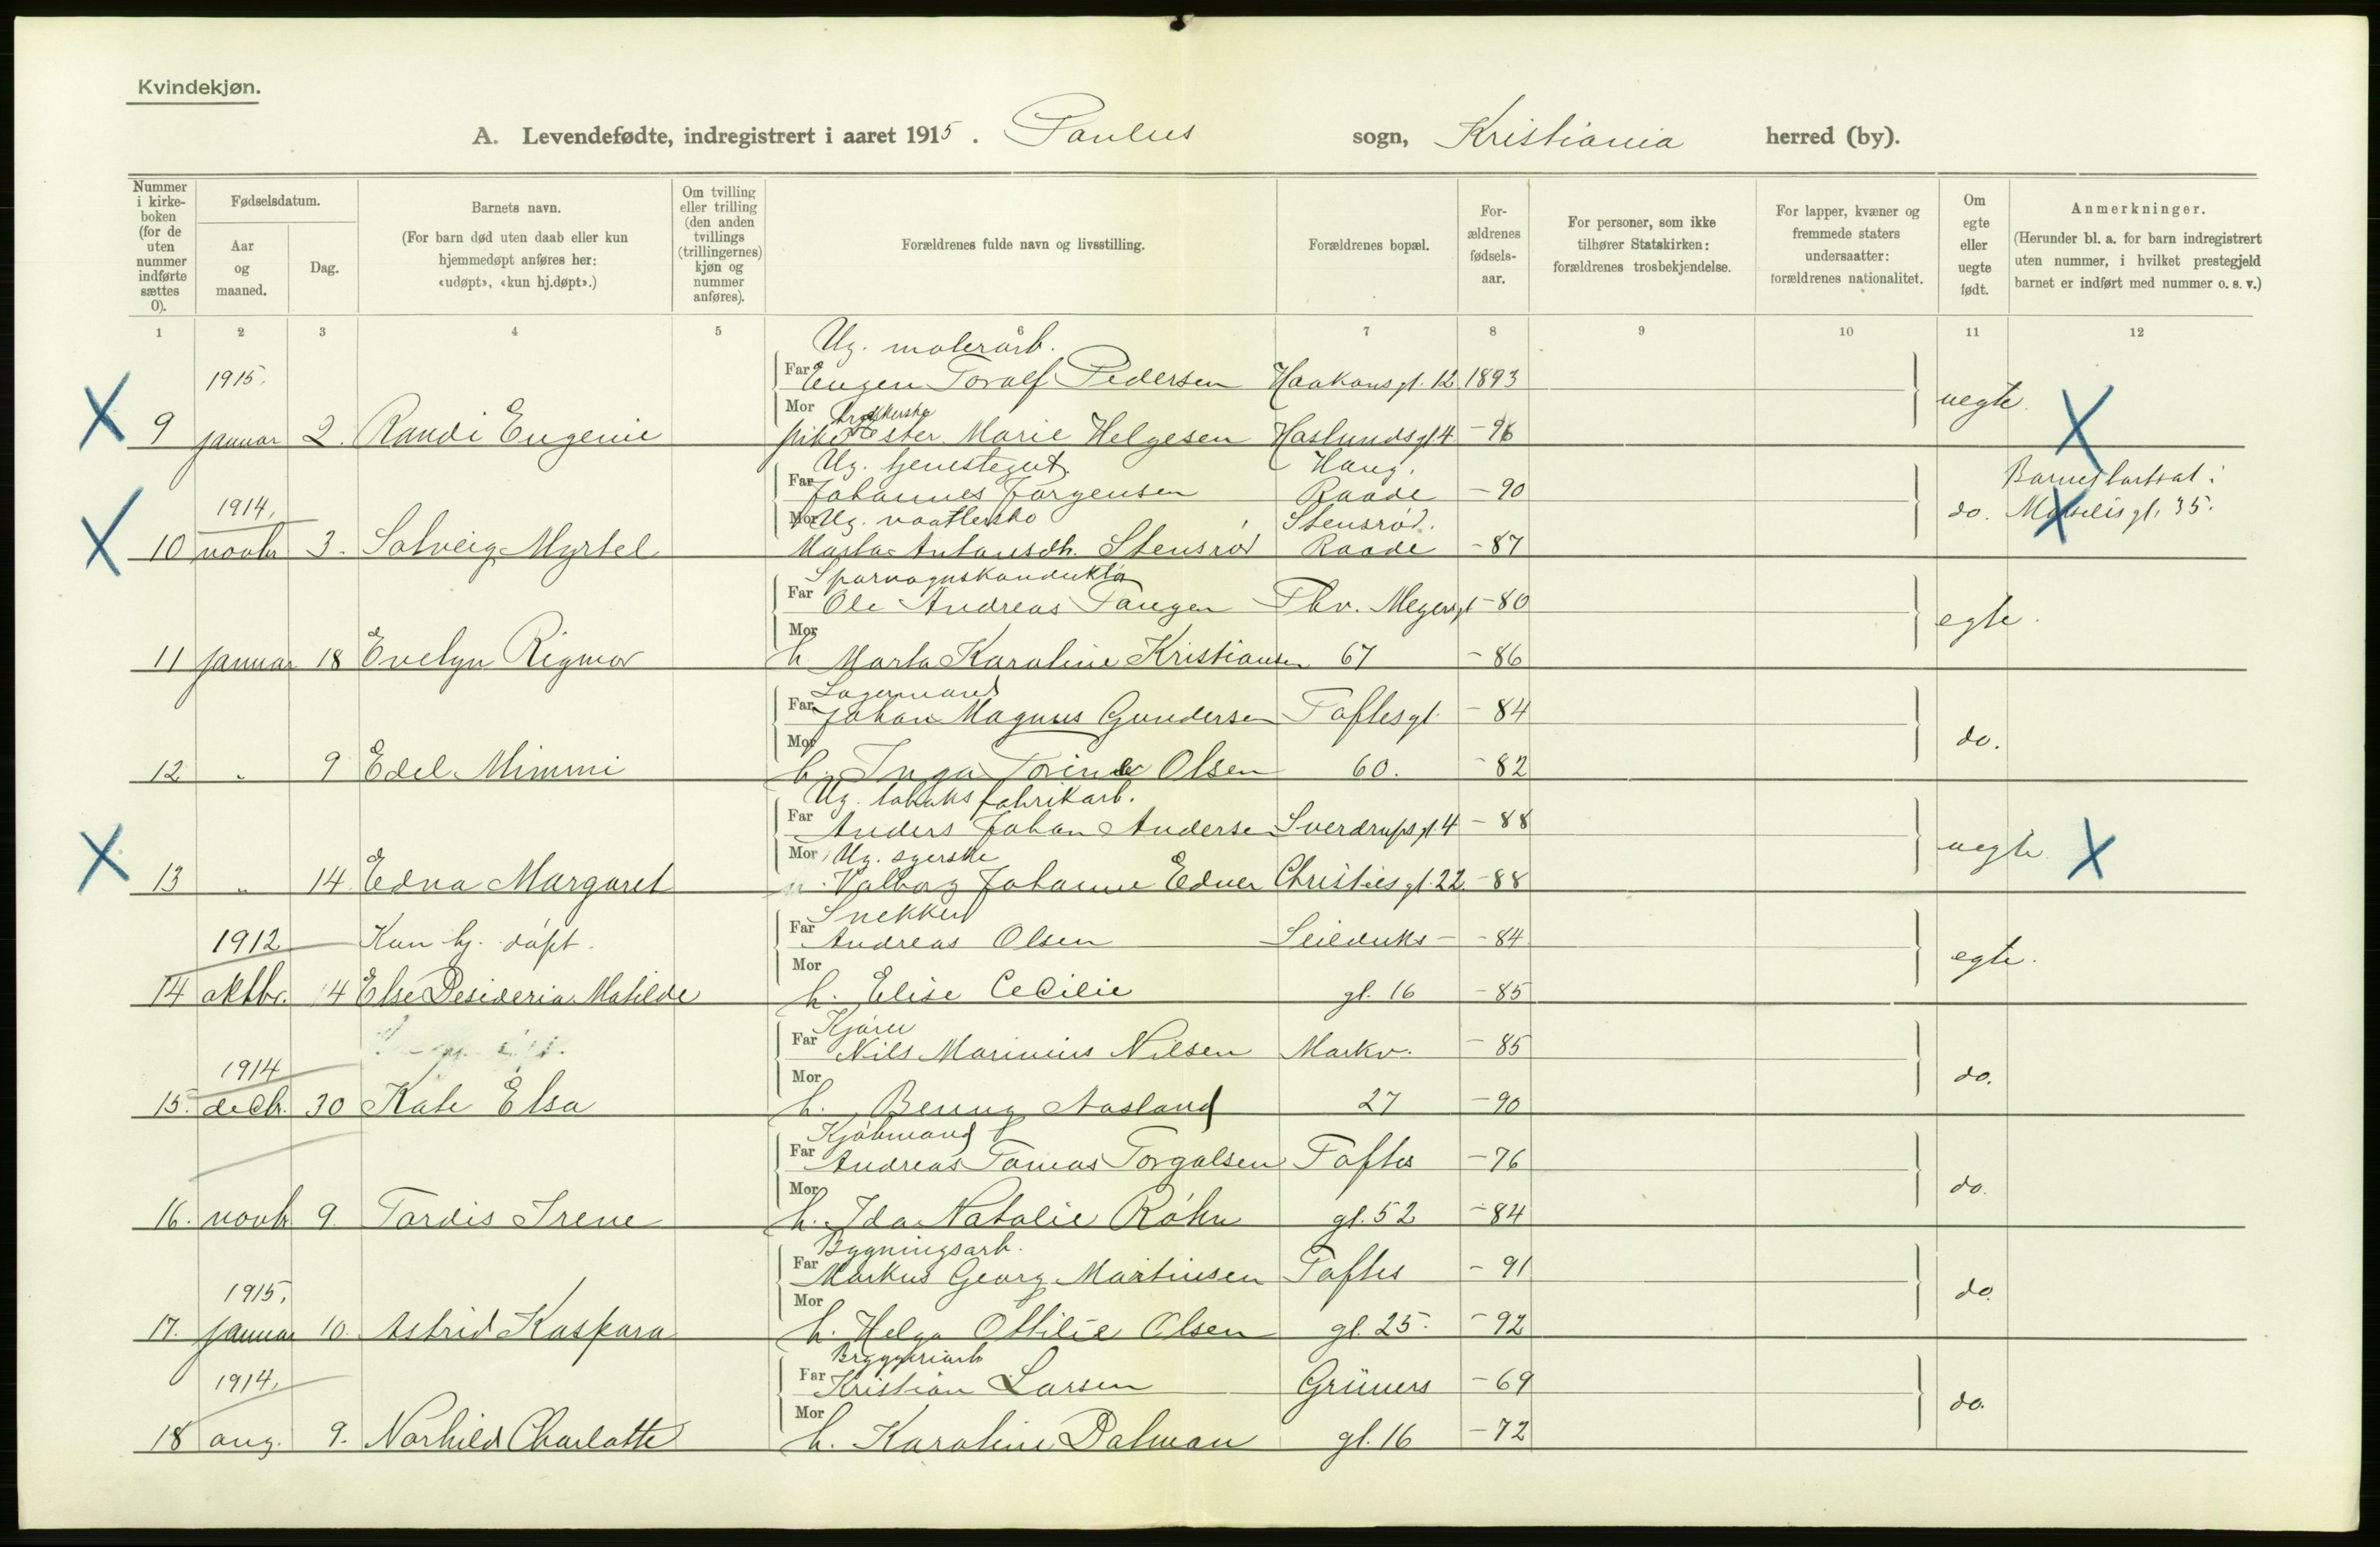 Kvindekjøn.
A. Levendefødte, indregistrert i aaret 1915. Paulus sogn, Kristiania herred (by).
Nummer i kirkeboken (for de uten nummer indførte sættes 0).
Fødselsdatum.
Aar og maaned.
Dag.
Barnets navn.
(For barn død uten daab eller kun hjemmedøpt anføres her: «udøpt», «kun hj.døpt».)
Om tvilling eller trilling (den anden tvillings (trillingernes) kjøn og nummer anføres).
Forældrenes fulde navn og livsstilling.
Forældrenes bopæl.
Forældrenes fødselsaar.
For personer, som ikke tilhører Statskirken: forældrenes trosbekjendelse.
For lapper, kvæner og fremmede staters undersaatter: forældrenes nationalitet.
Om egte eller uegte født.
Anmerkninger.
(Herunder bl. a. for barn indregistrert uten nummer, i hvilket prestegjeld barnet er indført med nummer o. s. v.)
1 2 3 4 5 6 7 8 9 10 11 12
Ug. malerarb.
1915. Far Eugen Toralf Pedersen Haakonsgt. 12 1893 uegte.
Mor
9 januar 2. Randi Eugenie Ester Marie Helgesen Haslundsgt 4 -96
Ug. tjenestegut. Haug.
Far Johannes Jørgensen Raade -90
1914, do. Mor Ug. Stensrød.
10 novbr 3. Solveig Myrtel Marta Antonsdtr. Stensrød Raade -87
Sporvognskonduktør
Far Ole Andreas Tangen Thv. Meyersgt -80 egte.
Mor
11 januar 18 Evelyn Rigmor h. Marta Karoline Kristiansen 67 -86
Lagermand
Far Johan Magnus Gundersen Toftesgt. -84 do.
Mor
12 " 9 Edel Mimmi h. Inga Olsen 60. -82
Ug. tobaksfabrikarb.
Far Anders Johan Andersen Sverdrupsgt. 4 -88 uegte.
Mor Ug. syerske
13 " 14 Edna Margaret Valborg Johanne Edner Christiesgt. 22. -88
Snekker
1912 Kun hj. døpt. Far Andreas Olsen Seilduks- -84 egte.
Mor
14 oktbr. 14 Else Desideria Matilde h. Elise Cecilie gt. 16 -85
Kjører
Far Nils Marinius Nilsen Markv. -85 do.
1914 Mor
15. decbr. 30 Kate Elsa h. Benny Aasland 27 -90
Kjøbmand
Far Andreas Tomas Torgalsen Toftes -76 do.
Mor
16. novbr 9. Tordis Irene h. Ida Natalie Røhn gt. 52 -84
Bygningsarb.
Far Markus Georg Martinsen Toftes -91 do.
1915, Mor
17. januar 10. Astrid Kaspara h. Helga Ottilie Olsen gt. 25. -92
Bryggeriarb
1914, Far Kristian Larsen Grüners -69 do.
Mor
18 aug. 9. Norhild Charlotte h. Karoline Dalman gt. 16 -72